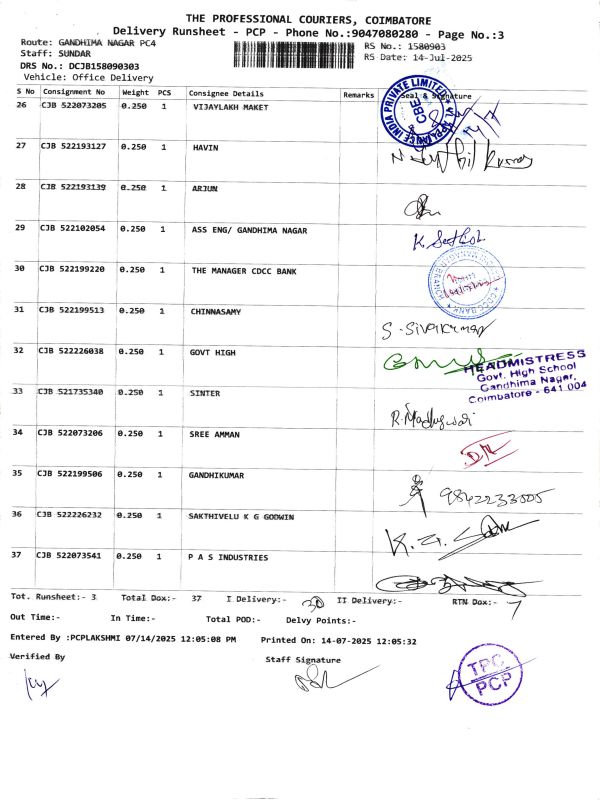 THE PROFESSIONAL COURIERS, COIMBATORE
Delivery Runsheet - PCP - Phone No.:9047080280 - Page No.:3
Route: GANDHIMA NAGAR PC4
Staff: SUNDAR
DRS No.: DCJB158090303
Vehicle: Office Delivery
RS No.: 1580903
RS Date: 14-Jul-2025
S No Consignment No Weight PCS Consignee Details Remarks Seal & Signature
26 CJB 522073205 0.250 1 VIJAYLAKH MAKET
INDIA PRIVATE LIMITED CBE
27 CJB 522193127 0.250 1 HAVIN
28 CJB 522193139 0.250 1 ARJUN
29 CJB 522102054 0.250 1 ASS ENG/ GANDHIMA NAGAR
30 CJB 522199220 0.250 1 THE MANAGER CDCC BANK
31 CJB 522199513 0.250 1 CHINNASAMY
S. Sivakumar
32 CJB 522226038 0.250 1 GOVT HIGH
HEADMISTRESS
Govt. High School
Gandhima Nagar,
Coimbatore - 641 004
33 CJB 521735340 0.250 1 SINTER
34 CJB 522073206 0.250 1 SREE AMMAN
35 CJB 522199506 0.250 1 GANDHIKUMAR
9842233005
36 CJB 522226232 0.250 1 SAKTHIVELU K G GODWIN
37 CJB 522073541 0.250 1 P A S INDUSTRIES
Tot. Runsheet:- 3 Total Dox:- 37 I Delivery:- 30 II Delivery:- RTN Dox:- 7
Out Time:- In Time:- Total POD:- Delvy Points:-
Entered By :PCPLAKSHMI 07/14/2025 12:05:08 PM Printed On: 14-07-2025 12:05:32
Verified By Staff Signature
TPC
PCP